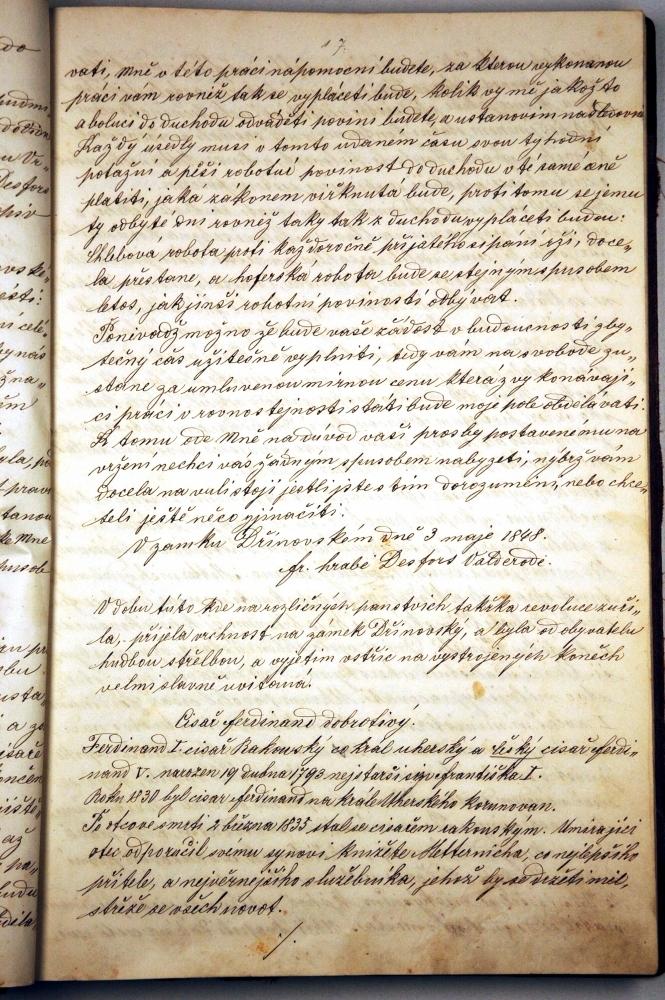 17.
vati, mně v této práci nápomocni budete, za kterou vykonanou
práci vám rovněž tak se vypláceti bude, kolik vy mě jakožto
aboluci do duchodu odváděti povini budete, a ustanovim
Každý usedlý musi v tomto udaném času svou tyhodní
potažní a pěší robotní povinost do duchodu v té samé ceně
platiti, jaká zakonem viřknutá bude, proti tomu se jemu
ty odbyté dni rovněž taky tak z duchodu vyplaceti budou:
Chlebová robota proti každoročně přijatého sipani rži, doce„
la přestane, a hoferska robota bude se stejným spusobem
letos, jak jinší robotní povinosti odbývat.
Ponivadž možno že bude vaše žádost v budoucnosti zby„
tečný čas užitešně vyplniti, tedy vám na svobodě zu„
stane za umluvenou mirnou cenu kteráz vykonávají„
cí práci v rovnostejnosti státi bude moje pole obdělávati.
K tomu ode Mně na důvod vaší prosby postavenému na„
vržení nechci vás žadným spusobem nabyzeti, nybrž vám
docela na vuli stoji jestli jste s tím dorozuměni, nebo chce„
teli ještě něco jináčiti.
V zamku Dřinovském dně 3 maje 1848.
fr. hrabě Desfors Valderode.
V dobu túto kde na rozličných panstvích takřka revoluce zuři„
la, přijela vrchnost na zámek Dřinovský, a byla od obyvatelu
hudbou střelbou, a vyjetim vstříc na vystrojených koněch
velmi slavně uvítaná.
Cisař ferdinand dobrotivý.
Ferdinand I. cisař Rakouský co král uherský a český cisař ferdi„
nand V. narozen 19 dubna 1793 nejstarší syn františka I.
Roku 1830 byl cisar ferdinand na krále Uherského korunovan.
Po otcove smrti 2 března 1835 stal se cisařem rakouským. Umirajici
otec odporučil svému synovi knižete Metternicha, co nejlepšiho
přitele, a nejvěrnejšiho služebnika, jehož by se držeti měl,
střeže se všech novot.
./.